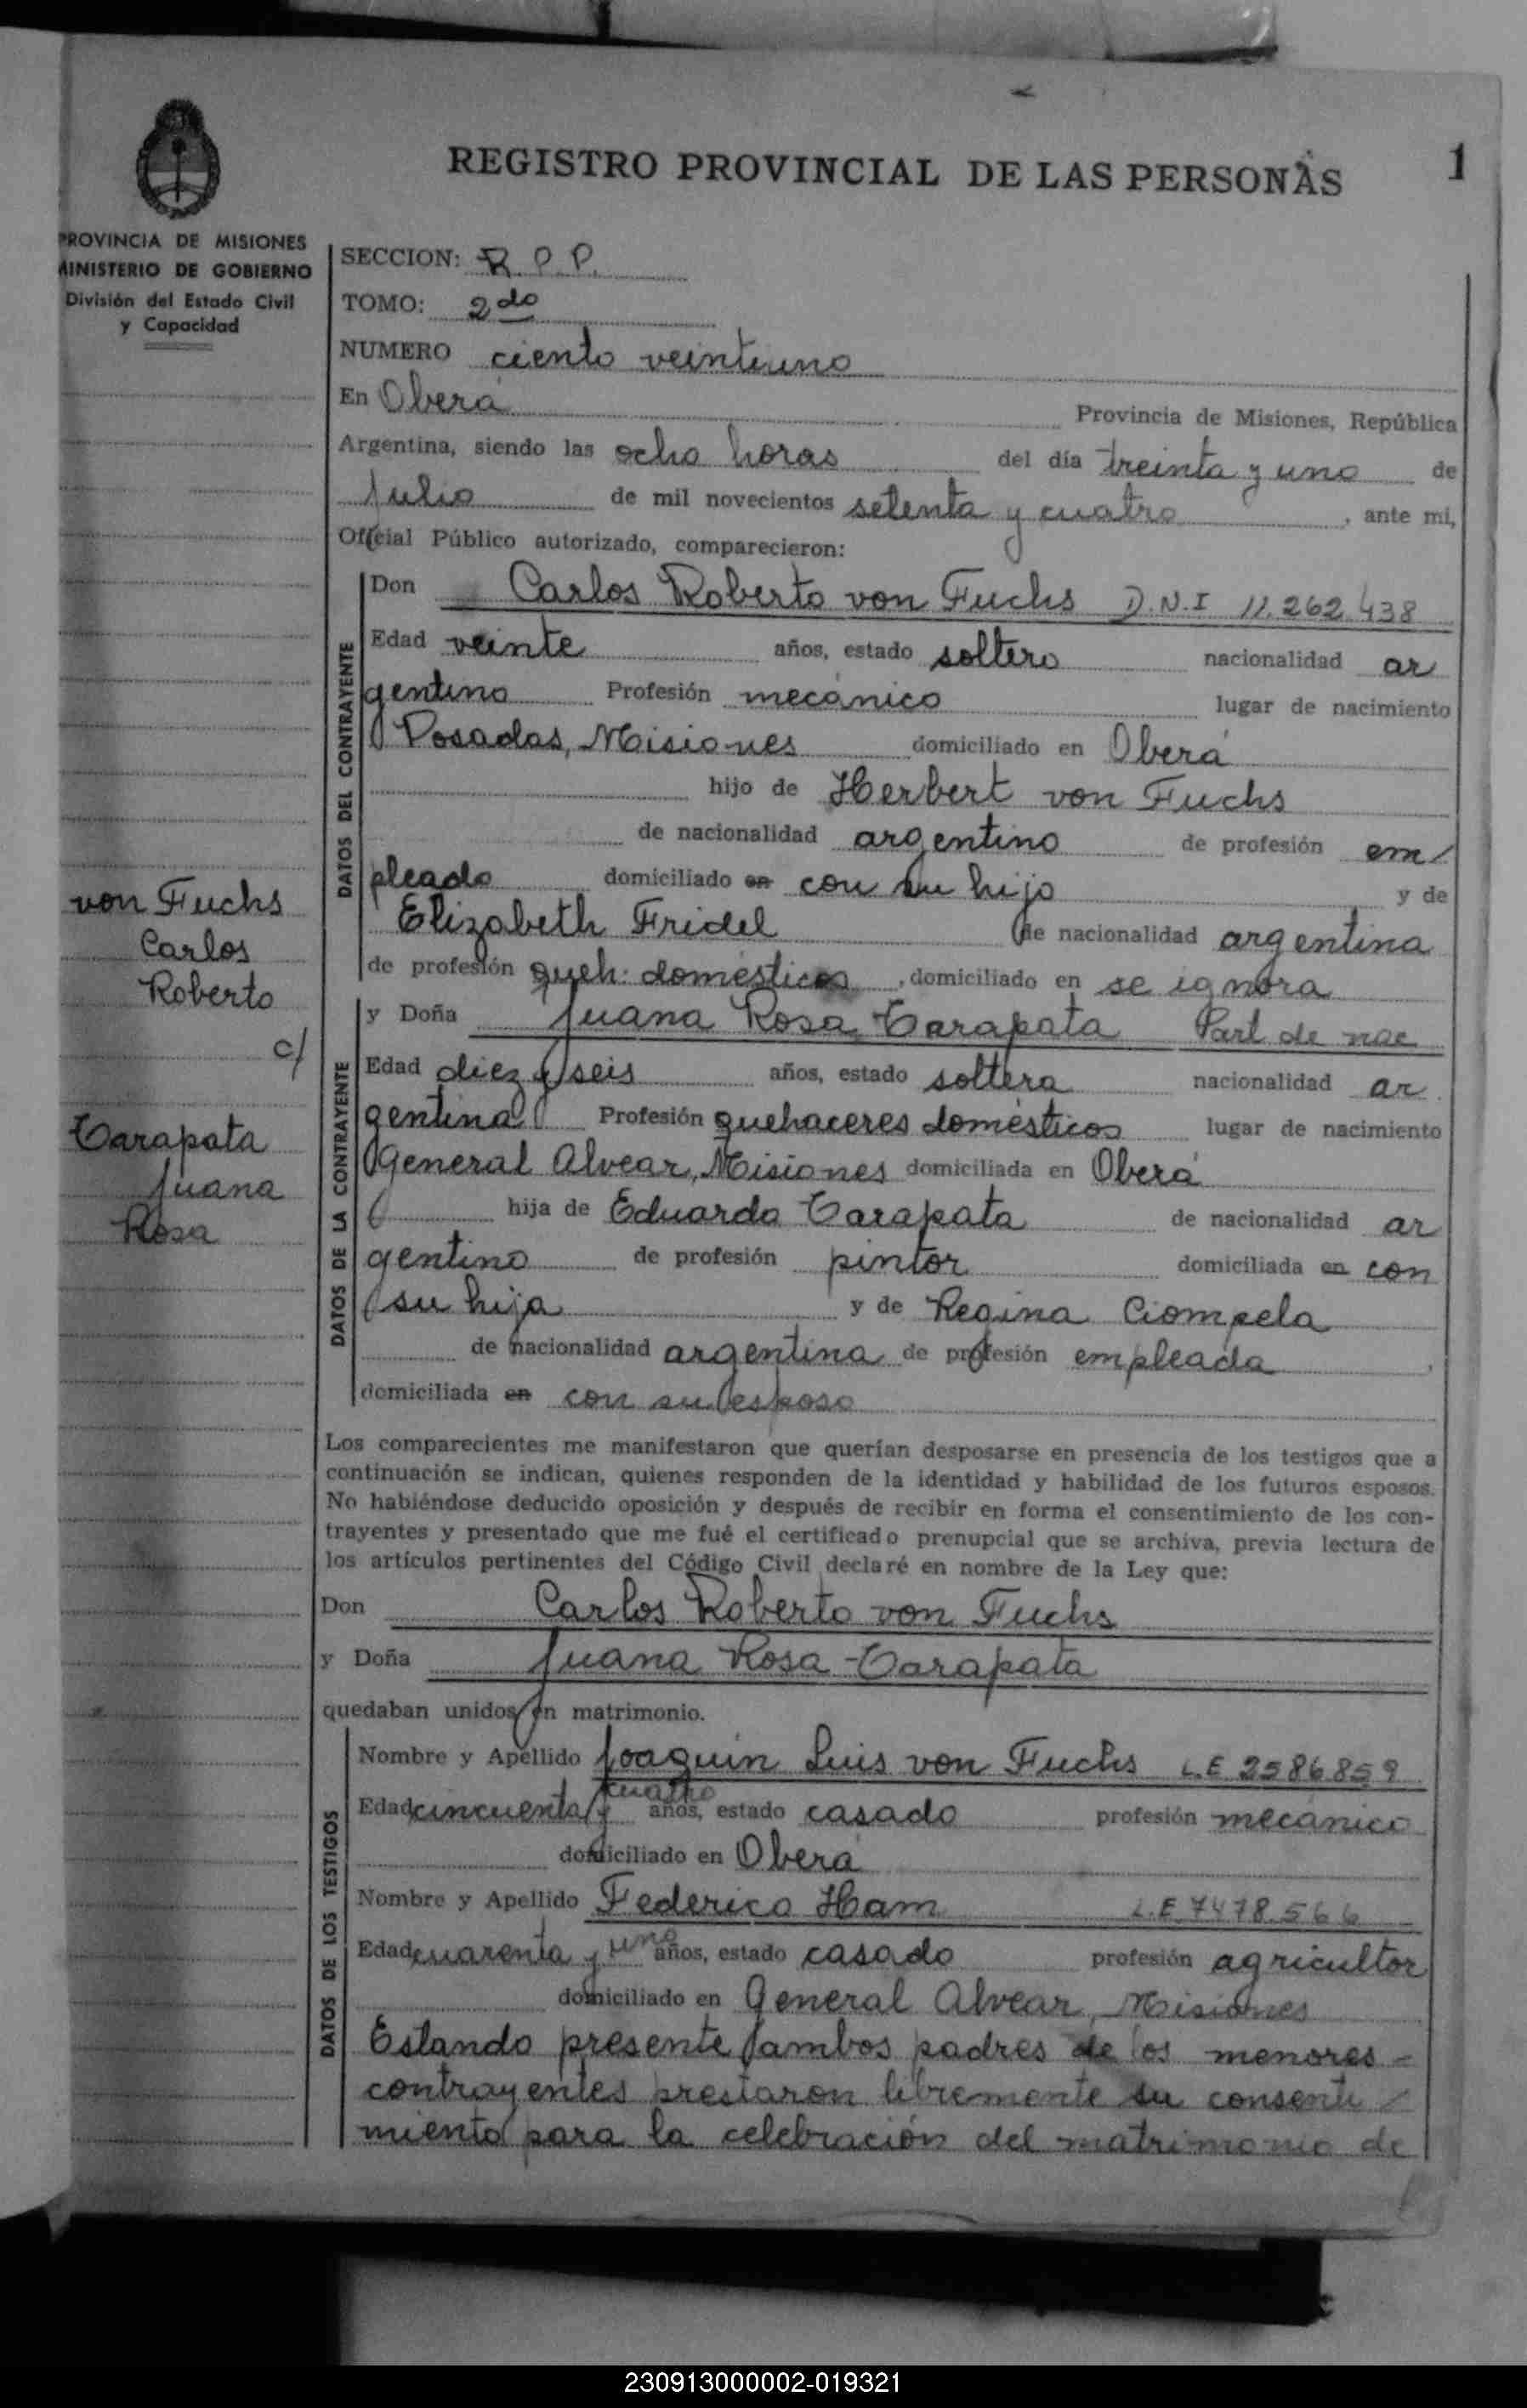 REGISTRO PROVINCIAL DE LAS PERSONAS
1
PROVINCIA DE MISIONES
MINISTERIO DE GOBIERNO
División del Estado Civil
y Capacidad
SECCION: R.P.P.
TOMO: 2do
NUMERO ciento veintiuno
En Oberá Provincia de Misiones, República
Argentina, siendo las ocho horas del día treinta y uno de
Julio de mil novecientos setenta y cuatro, ante mi,
Oficial Público autorizado, comparecieron:
DATOS DEL CONTRAYENTE
Don Carlos Roberto von Fuchs D.N.I 11.262.438
Edad veinte años, estado soltero nacionalidad ar
gentino Profesión mecánico lugar de nacimiento
Posadas, Misiones domiciliado en Oberá
hijo de Herbert von Fuchs
de nacionalidad argentino de profesión em/
pleado domiciliado en con su hijo y de
Elizabeth Fridel de nacionalidad argentina
de profesión queh. domésticos, domiciliado en se ignora
von Fuchs
Carlos
Roberto
c/
Tarapata
Juana
Rosa
DATOS DE LA CONTRAYENTE
y Doña Juana Rosa Tarapata Part de nac
Edad diez y seis años, estado soltera nacionalidad ar
gentina Profesión quehaceres domésticos lugar de nacimiento
General Alvear, Misiones domiciliada en Oberá
hija de Eduardo Tarapata de nacionalidad ar
gentino de profesión pintor domiciliada en con
su hija y de Regina Ciompela
de nacionalidad argentina de profesión empleada,
domiciliada en con su esposo
Los comparecientes me manifestaron que querían desposarse en presencia de los testigos que a
continuación se indican, quienes responden de la identidad y habilidad de los futuros esposos.
No habiéndose deducido oposición y después de recibir en forma el consentimiento de los con-
trayentes y presentado que me fué el certificado prenupcial que se archiva, previa lectura de
los artículos pertinentes del Código Civil declaré en nombre de la Ley que:
Don Carlos Roberto von Fuchs
y Doña Juana Rosa Tarapata
quedaban unidos en matrimonio.
DATOS DE LOS TESTIGOS
Nombre y Apellido Joaquin Luis von Fuchs L.E 2586859
Edad cincuenta y cuatro años, estado casado profesión mecánico
domiciliado en Oberá
Nombre y Apellido Federico Ham L.E 7478.566
Edad cuarenta y uno años, estado casado profesión agricultor
domiciliado en General Alvear, Misiones
Estando presente ambos padres de los menores -
contrayentes prestaron libremente su consenti /
miento para la celebración del matrimonio de
230913000002-019321